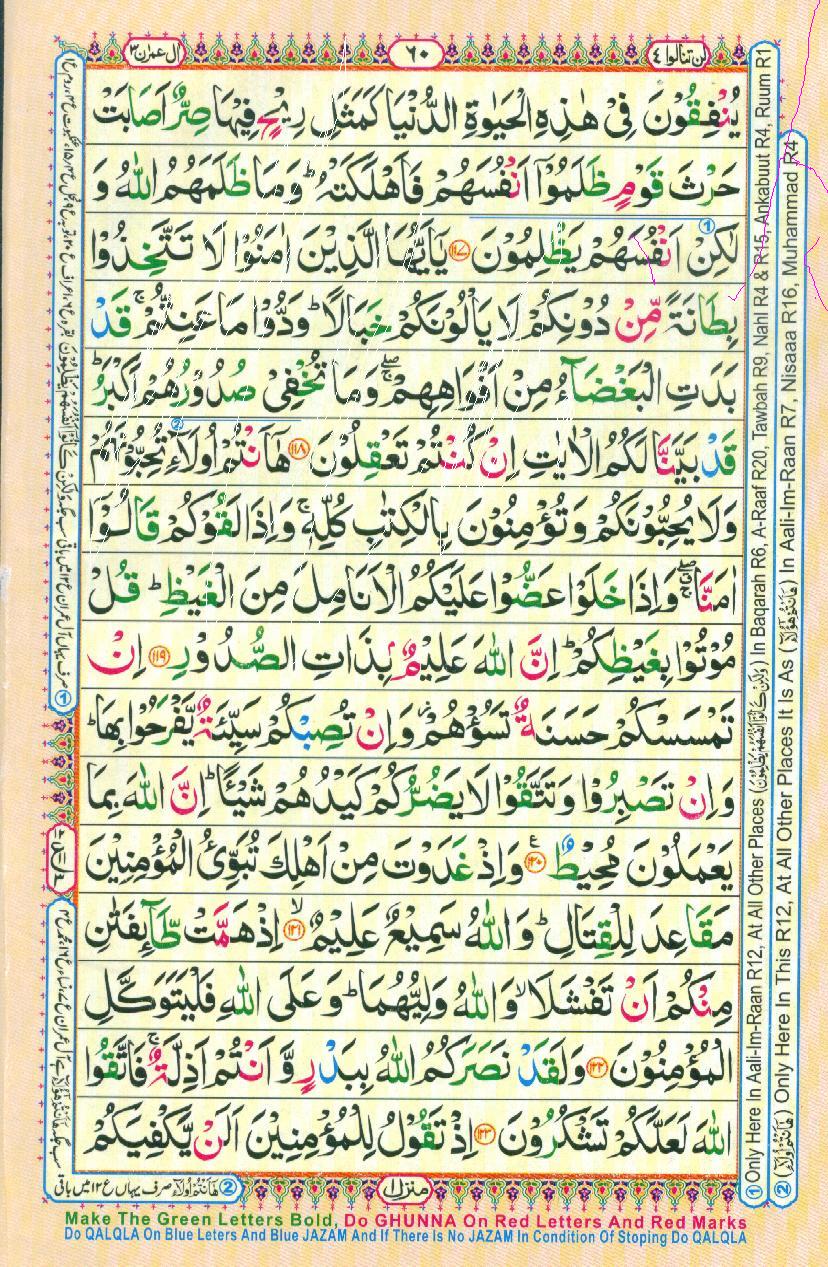 لن تنالوا ٤
٦٠
ال عمرٰن ٣
يُنْفِقُوْنَ فِيْ هٰذِهِ الْحَيٰوةِ الدُّنْيَا كَمَثَلِ رِيْحٍ فِيْهَا صِرٌّ اَصَابَتْ
حَرْثَ قَوْمٍ ظَلَمُوْٓا اَنْفُسَهُمْ فَاَهْلَكَتْهُ ؕ وَمَا ظَلَمَهُمُ اللّٰهُ وَ
لٰكِنْ اَنْفُسَهُمْ يَظْلِمُوْنَ ﴿۱۱۷﴾ يٰٓاَيُّهَا الَّذِيْنَ اٰمَنُوْا لَا تَتَّخِذُوْا
بِطَانَةً مِّنْ دُوْنِكُمْ لَا يَاْلُوْنَكُمْ خَبَالًا ؕ وَدُّوْا مَا عَنِتُّمْ ۚ قَدْ
بَدَتِ الْبَغْضَآءُ مِنْ اَفْوَاهِهِمْ ۖۚ وَمَا تُخْفِيْ صُدُوْرُهُمْ اَكْبَرُ ؕ
قَدْ بَيَّنَّا لَكُمُ الْاٰيٰتِ اِنْ كُنْتُمْ تَعْقِلُوْنَ ﴿۱۱۸﴾ هٰٓاَنْتُمْ اُولَآءِ تُحِبُّوْنَهُمْ
وَلَا يُحِبُّوْنَكُمْ وَتُؤْمِنُوْنَ بِالْكِتٰبِ كُلِّهٖ ۚ وَاِذَا لَقُوْكُمْ قَالُوْٓا
اٰمَنَّا ۖۗۚ وَاِذَا خَلَوْا عَضُّوْا عَلَيْكُمُ الْاَنَامِلَ مِنَ الْغَيْظِ ؕ قُلْ
مُوْتُوْا بِغَيْظِكُمْ ؕ اِنَّ اللّٰهَ عَلِيْمٌۢ بِذَاتِ الصُّدُوْرِ ﴿۱۱۹﴾ اِنْ
تَمْسَسْكُمْ حَسَنَةٌ تَسُؤْهُمْ ۡ وَاِنْ تُصِبْكُمْ سَيِّئَةٌ يَّفْرَحُوْا بِهَا ؕ
وَاِنْ تَصْبِرُوْا وَتَتَّقُوْا لَا يَضُرُّكُمْ كَيْدُهُمْ شَيْئًا ؕ اِنَّ اللّٰهَ بِمَا
يَعْمَلُوْنَ مُحِيْطٌ ﴿۱۲۰﴾ وَاِذْ غَدَوْتَ مِنْ اَهْلِكَ تُبَوِّئُ الْمُؤْمِنِيْنَ
مَقَاعِدَ لِلْقِتَالِ ؕ وَاللّٰهُ سَمِيْعٌ عَلِيْمٌ ﴿۱۲۱﴾ اِذْ هَمَّتْ طَّآئِفَتٰنِ
مِنْكُمْ اَنْ تَفْشَلَا ۙ وَاللّٰهُ وَلِيُّهُمَا ؕ وَعَلَى اللّٰهِ فَلْيَتَوَكَّلِ
الْمُؤْمِنُوْنَ ﴿۱۲۲﴾ وَلَقَدْ نَصَرَكُمُ اللّٰهُ بِبَدْرٍ وَّاَنْتُمْ اَذِلَّةٌ ۚ فَاتَّقُوا
اللّٰهَ لَعَلَّكُمْ تَشْكُرُوْنَ ﴿۱۲۳﴾ اِذْ تَقُوْلُ لِلْمُؤْمِنِيْنَ اَلَنْ يَّكْفِيَكُمْ
① Only Here In Aali-Im-Raan R12, At All Other Places (وَلٰكِنْ كَانُوْٓا اَنْفُسَهُمْ يَظْلِمُوْنَ) In Baqarah R6, A-Raaf R20, Tawbah R9, Nahl R4 & R15, Ankabuut R4, Ruum R1
② (هٰٓاَنْتُمْ اُولَآءِ) Only Here In This R12, At All Other Places It Is As (هٰٓاَنْتُمْ هٰٓؤُلَآءِ) In Aali-Im-Raan R7, Nisaaa R16, Muhammad R4
② هٰٓاَنْتُمْ اُولَآءِ صرف یہاں ع ١٢ میں باقی
منزل ١
Make The Green Letters Bold, Do GHUNNA On Red Letters And Red Marks
Do QALQLA On Blue Leters And Blue JAZAM And If There Is No JAZAM In Condition Of Stoping Do QALQLA